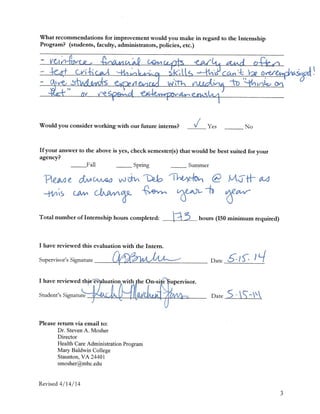 What recommendations for improvement would you make in regard to the Internship
Program? (students, faculty, administrators, policies, etc.)
- reinforce financial concepts early and often
- test critical thinking skills - this can't be overemphasized!
- give students experience with needing to "think on
feet" or respond extemporaneously
Would you consider working with our future interns? ✓ Yes ____ No
If your answer to the above is yes, check semester(s) that would be best suited for your
agency?
____Fall ____ Spring ____ Summer
Please discuss with Deb Thexton @ MJH as
this can change from year to year
Total number of Internship hours completed: 173 hours (150 minimum required)
I have reviewed this evaluation with the Intern.
Supervisor's Signature Date 5.15.14
I have reviewed this evaluation with the On-site Supervisor.
Student's Signature Date 5-15-14
Please return via email to:
Dr. Steven A. Mosher
Director
Health Care Administration Program
Mary Baldwin College
Staunton, VA 24401
smosher@mbc.edu
Revised 4/14/14
3